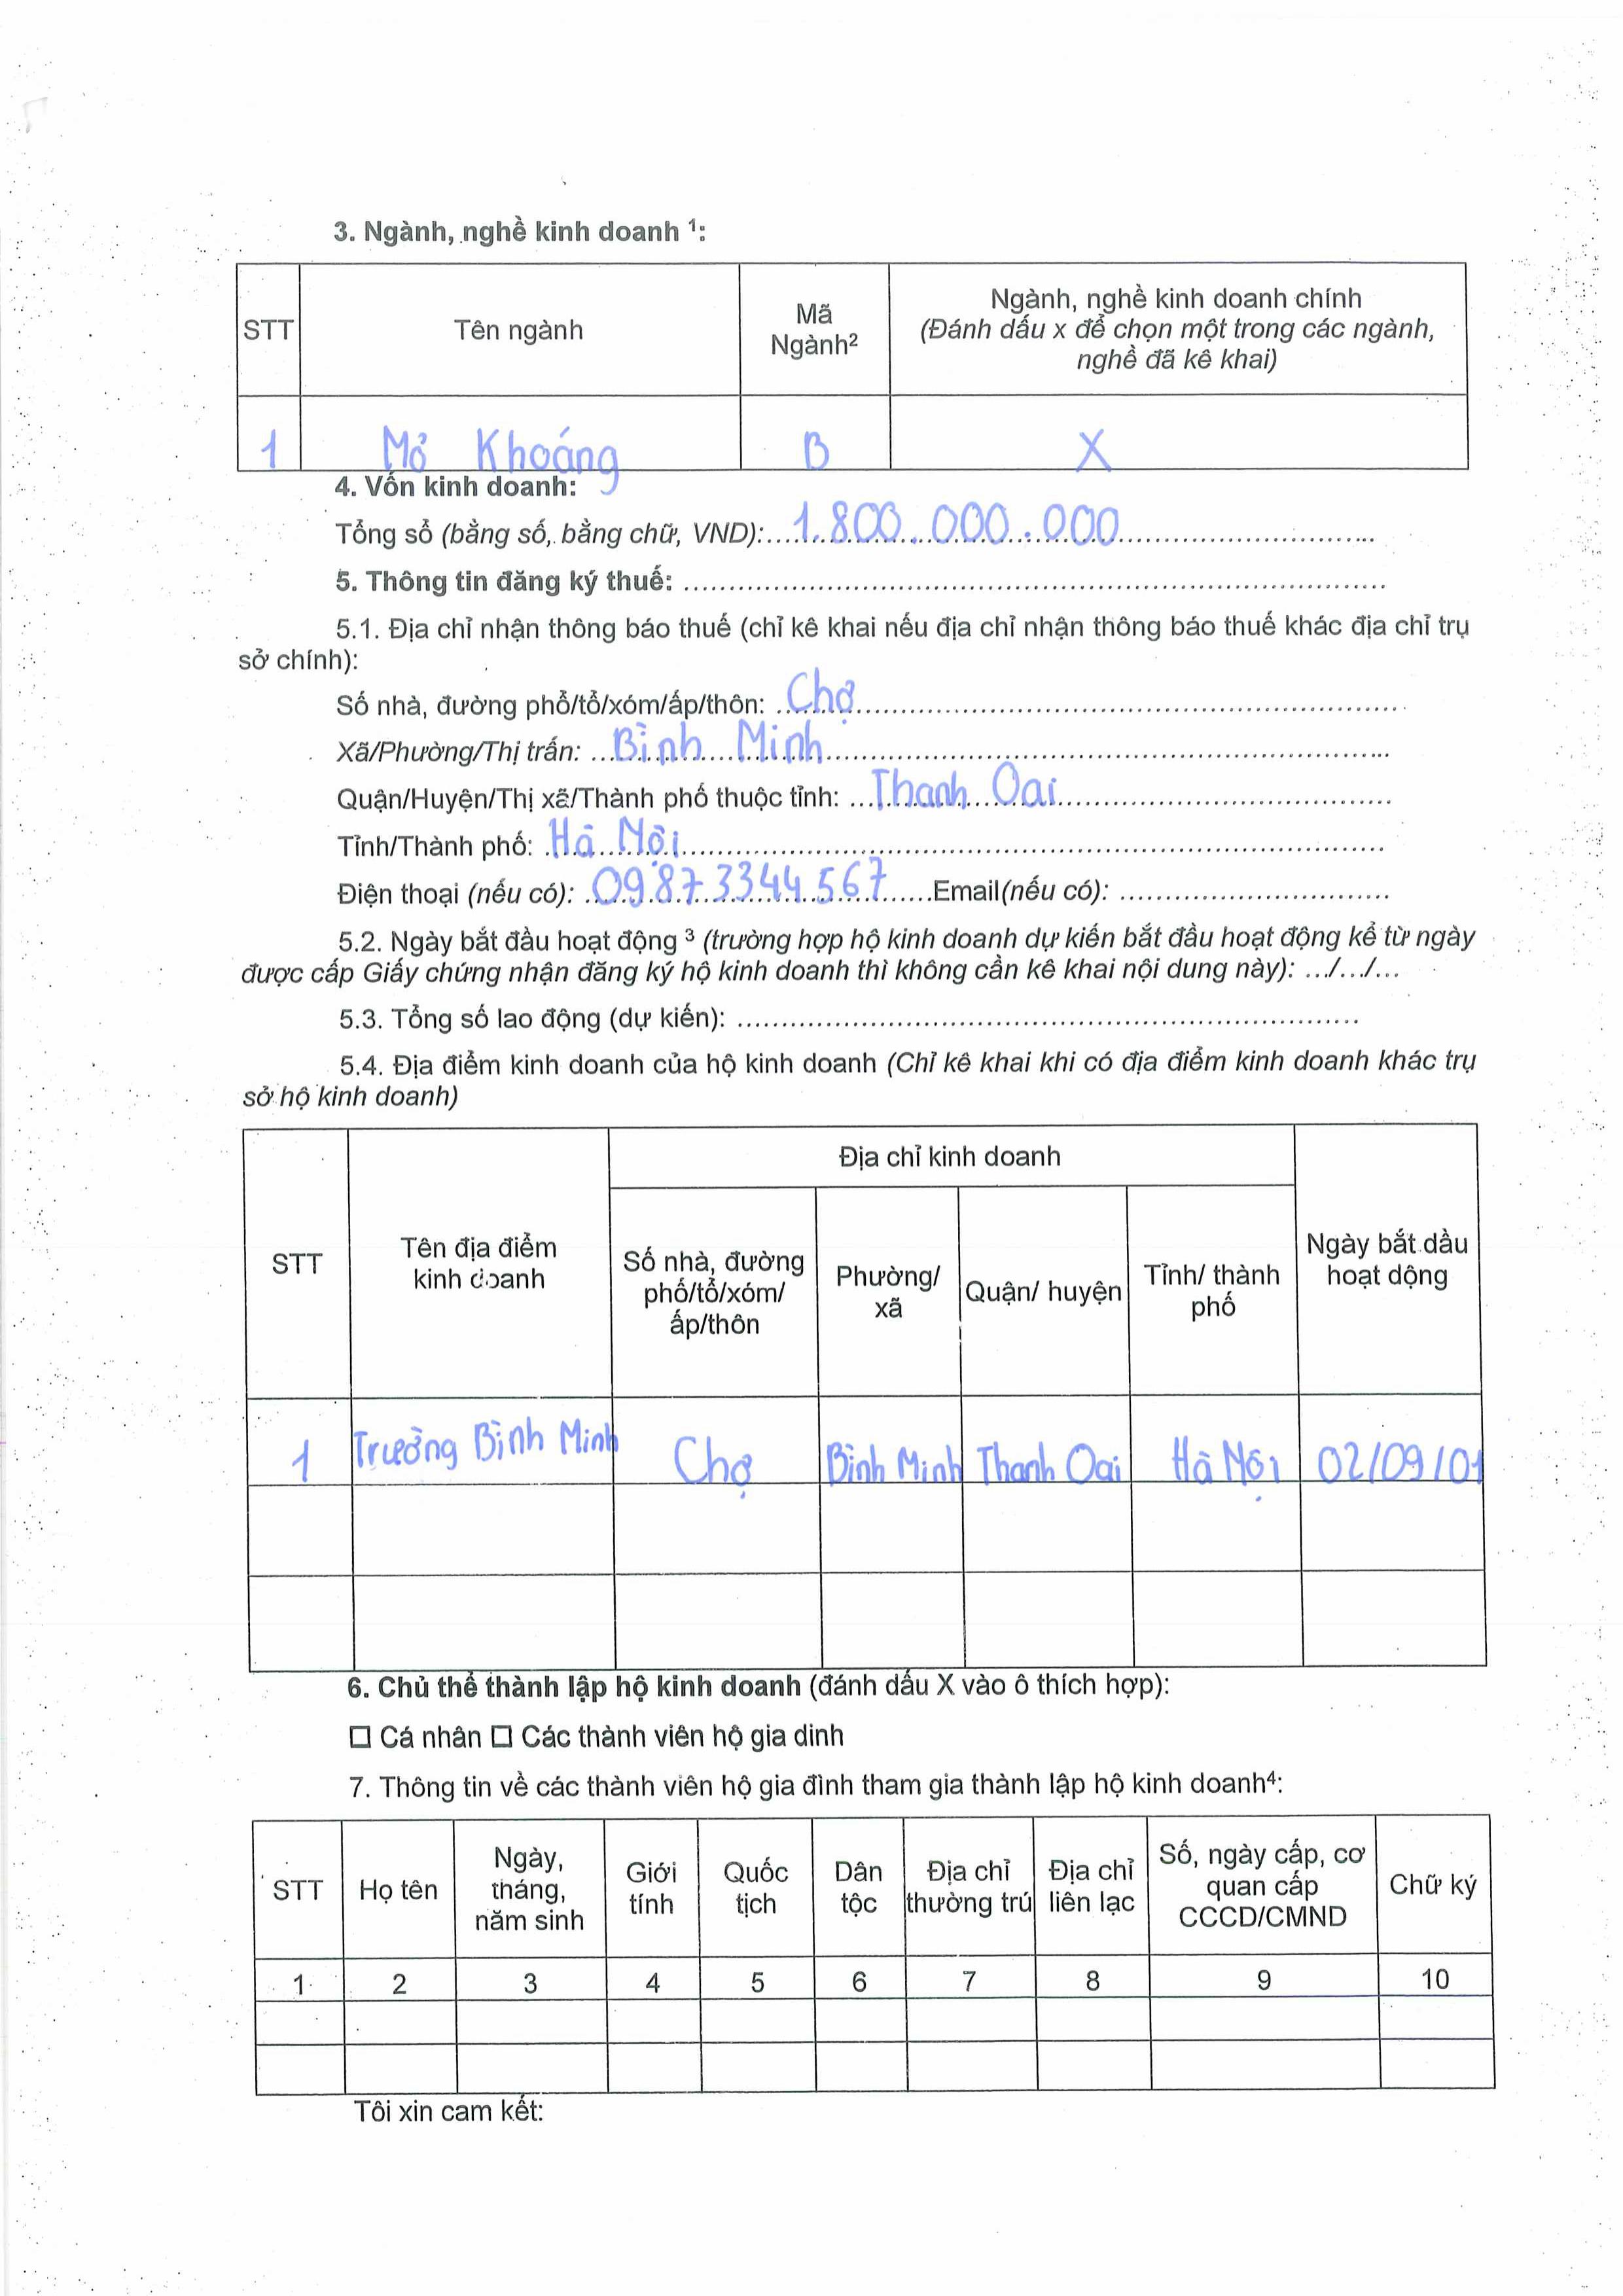 3. Ngành, nghề kinh doanh ¹:
STT
Tên ngành
Mã
Ngành²
Ngành, nghề kinh doanh chính
(Đánh dấu x để chọn một trong các ngành,
nghề đã kê khai)
1 Mỏ Khoáng B X
4. Vốn kinh doanh:
Tổng số (bằng số, bằng chữ, VND):....1.800.000.000..............................
5. Thông tin đăng ký thuế: ......................................................................
5.1. Địa chỉ nhận thông báo thuế (chỉ kê khai nếu địa chỉ nhận thông báo thuế khác địa chỉ trụ
sở chính):
Số nhà, đường phố/tổ/xóm/ấp/thôn: ...Chợ......................................................
Xã/Phường/Thị trấn: ...Bình Minh......................................................
Quận/Huyện/Thị xã/Thành phố thuộc tỉnh: ...Thanh Oai....................................
Tỉnh/Thành phố: ...Hà Nội......................................................................
Điện thoại (nếu có): ...09873344567......Email(nếu có): ..............................
5.2. Ngày bắt đầu hoạt động ³ (trường hợp hộ kinh doanh dự kiến bắt đầu hoạt động kể từ ngày
được cấp Giấy chứng nhận đăng ký hộ kinh doanh thì không cần kê khai nội dung này): .../.../...
5.3. Tổng số lao động (dự kiến): ..................................................................
5.4. Địa điểm kinh doanh của hộ kinh doanh (Chỉ kê khai khi có địa điểm kinh doanh khác trụ
sở hộ kinh doanh)
STT
Tên địa điểm
kinh doanh
Địa chỉ kinh doanh
Số nhà, đường
phố/tổ/xóm/
ấp/thôn
Phường/
xã
Quận/ huyện
Tỉnh/ thành
phố
Ngày bắt dầu
hoạt động
1 Trường Bình Minh Chợ Bình Minh Thanh Oai Hà Nội 02/09/01
6. Chủ thể thành lập hộ kinh doanh (đánh dấu X vào ô thích hợp):
☐ Cá nhân ☐ Các thành viên hộ gia dinh
7. Thông tin về các thành viên hộ gia đình tham gia thành lập hộ kinh doanh⁴:
STT
Họ tên
Ngày,
tháng,
năm sinh
Giới
tính
Quốc
tịch
Dân
tộc
Địa chỉ
thường trú
Địa chỉ
liên lạc
Số, ngày cấp, cơ
quan cấp
CCCD/CMND
Chữ ký
1 2 3 4 5 6 7 8 9 10
Tôi xin cam kết: